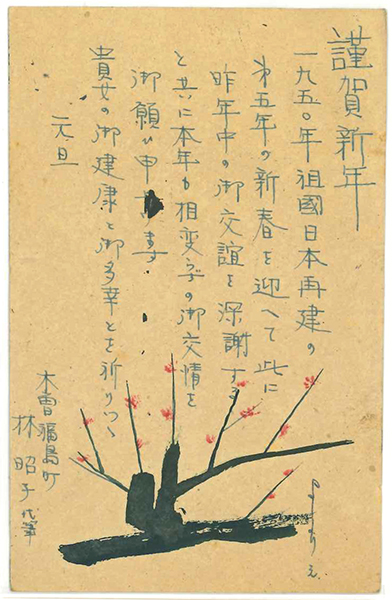 謹賀新年
一九五〇年祖國日本再建の
㐧五年の新春を迎へて此に
昨年中の御交誼を深謝する
と共に本年も相変らずの御交情を
御願ひ申
貴女の御建康と御多幸とを祈りつゝ
元旦
木曽福島町
林昭子代筆